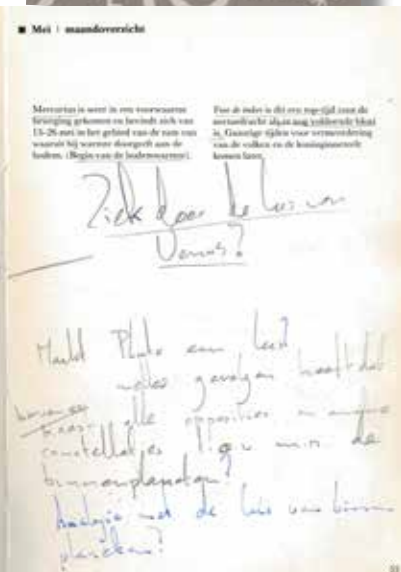 ■ Mei | maandoverzicht
Mercurius is weer in een voorwaartse
beweging gekomen en bevindt zich van
13-26 mei in het gebied van de ram van
waaruit hij warmte doorgeeft aan de
bodem. (Begin van de bodemwarmte).
Voor de imker is dit een top-tijd voor de
nectardracht als er nog voldoende bloei
is. Gunstige tijden voor vermeerdering
van de volken en de koninginneteelt
komen later.
Ziek door de lus van
Venus?
Maakt Pluto een lus?
welke gevolgen heeft dat
alle opposities en andere
constellaties t.o.v. de
binnenplaneten?
Analogie met de lus van binnen
planeten?